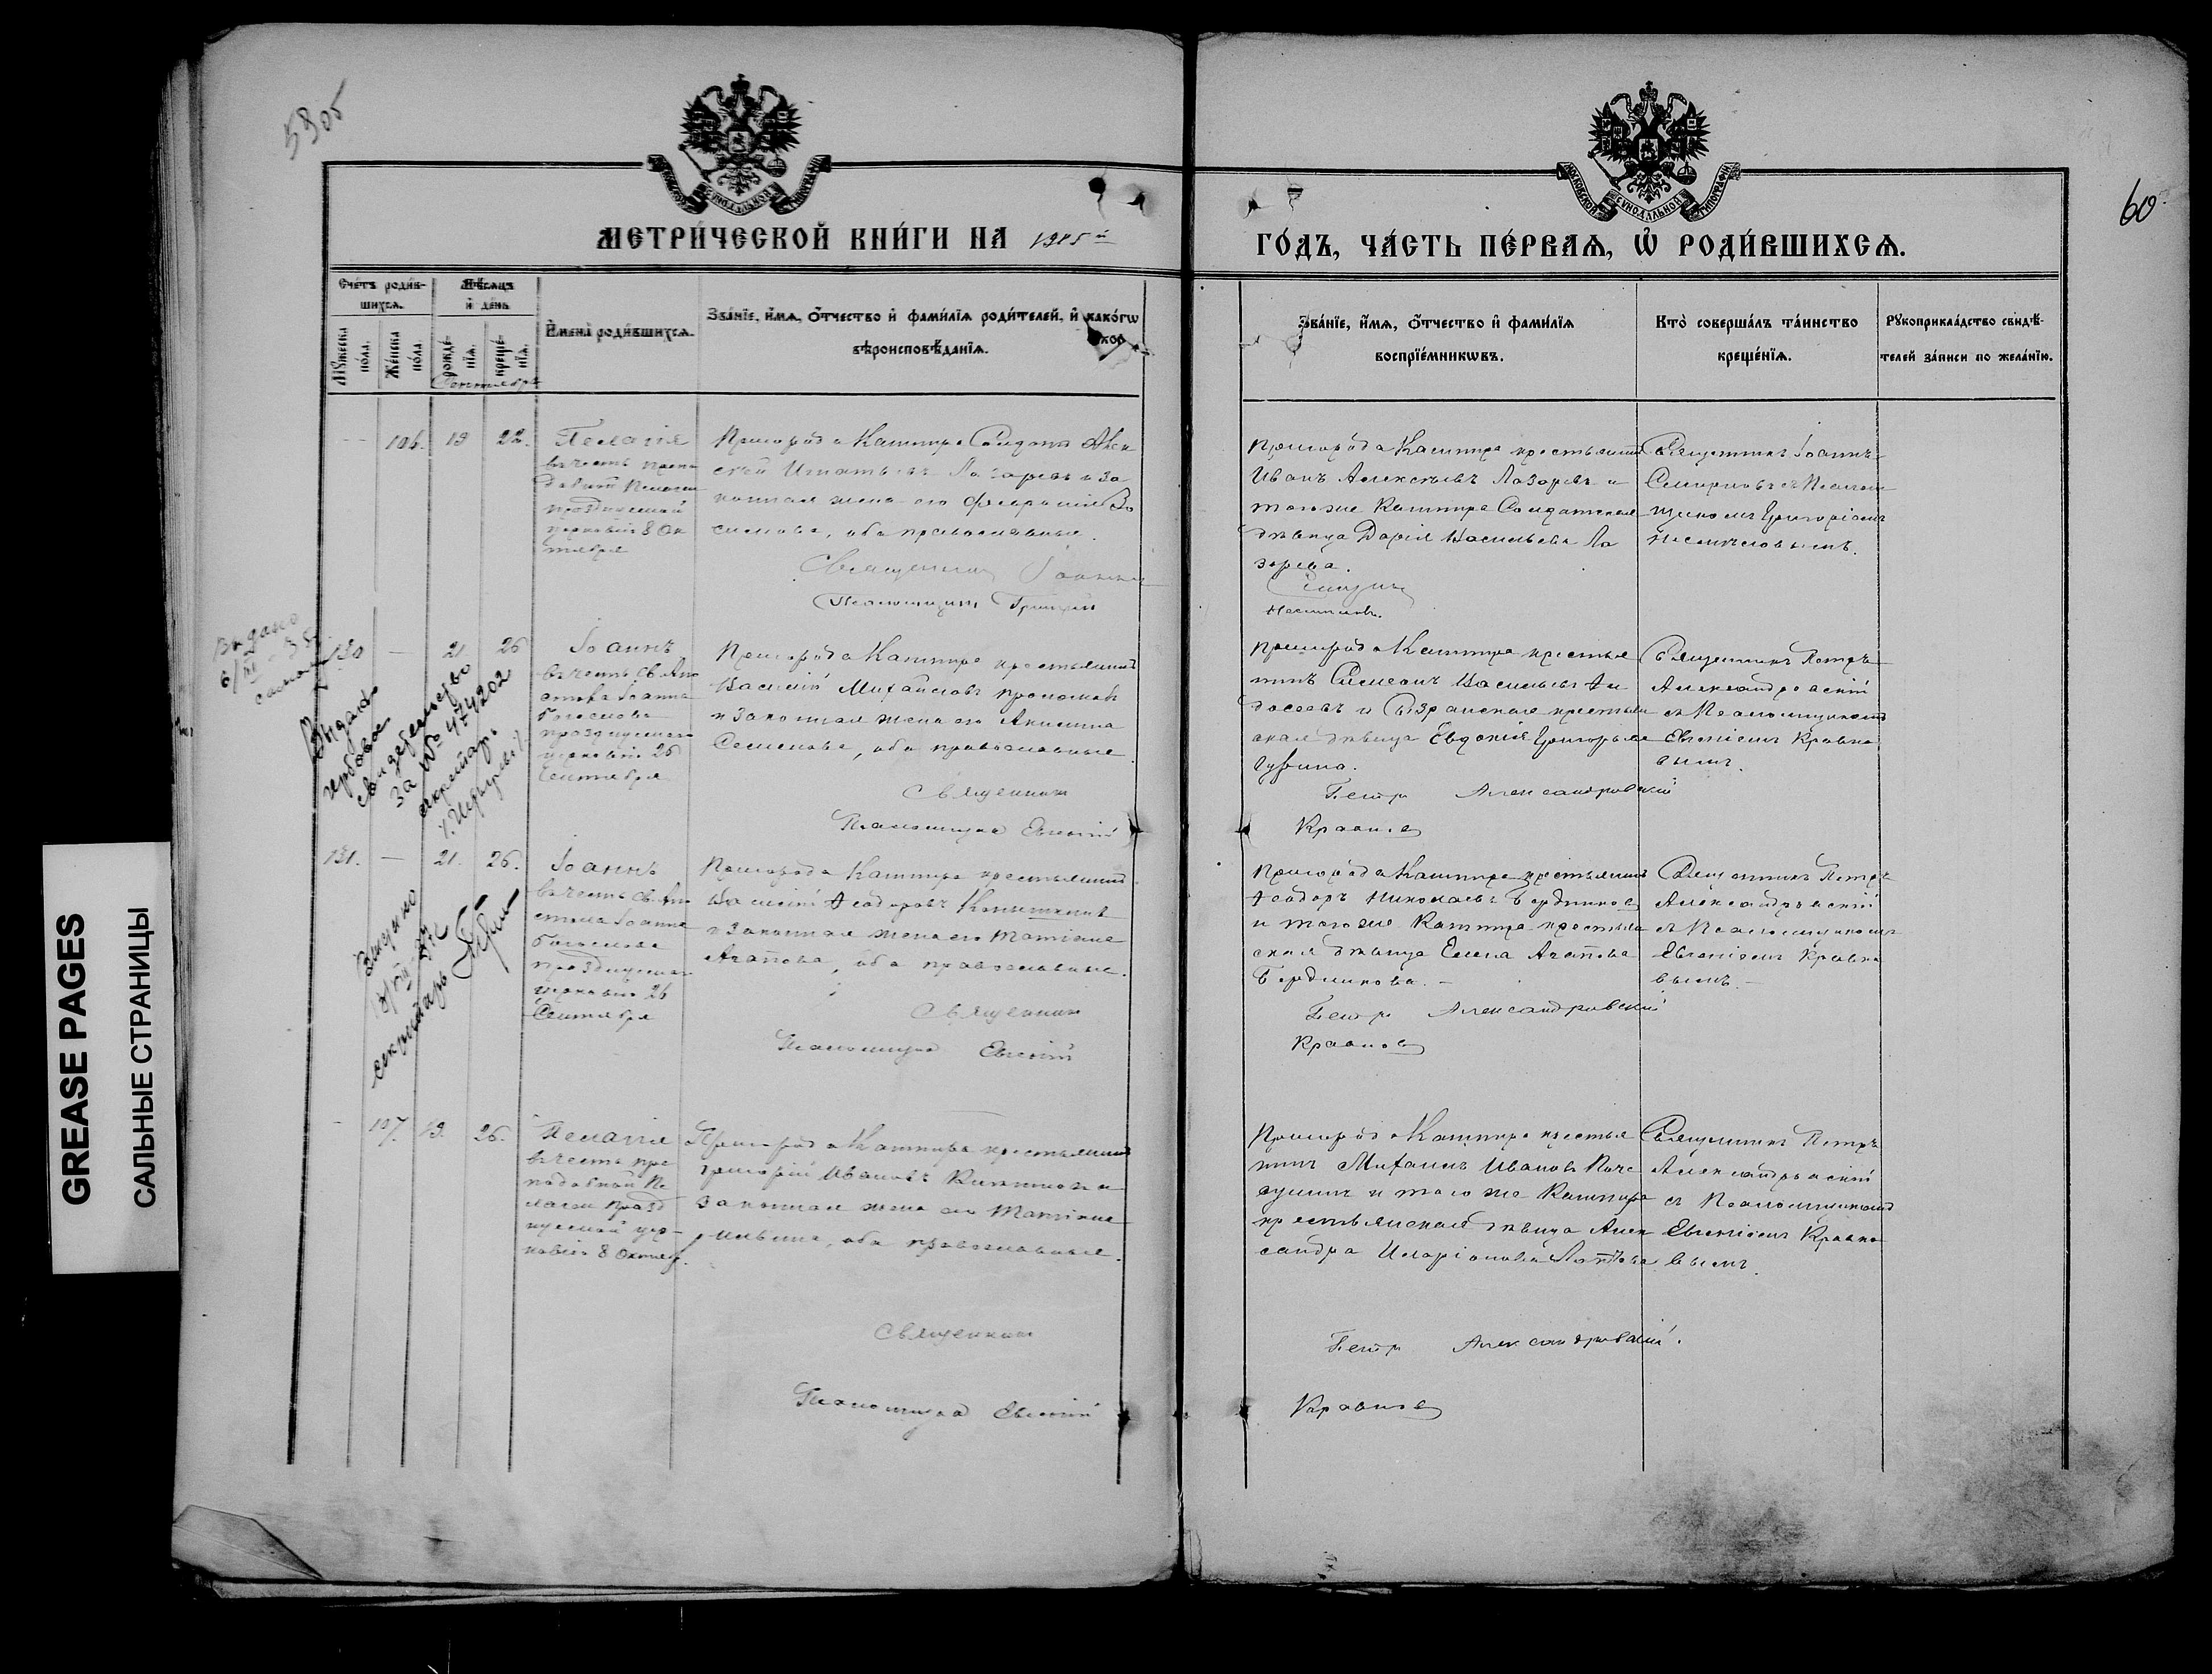 59об
60
МЕТРИ́ЧЕСКОЙ КНИ́ГИ НА 1905й
ГО́ДЪ, ЧА́СТЬ ПЕ́РВАѦ, Ѡ҆ РОДИ́ВШИХСѦ.
Сче́тъ роди́в-
шихсѧ.
Мѣ́сѧцъ
и҆ де́нь
Му́жеска
по́ла.
Же́нска
по́ла.
рожде́-
нїѧ.
креще́-
нїѧ.
И҆мена̀ роди́вшихсѧ.
Зва́нїе, и҆́мѧ, о҆́тчество и҆ фами́лїѧ роди́телей, и҆ како́гѡ
вѣроисповѣ́данїѧ.
Зва́нїе, и҆́мѧ, о҆́тчество и҆ фами́лїѧ
воспрїе́мникѡвъ.
Кто̀ соверша́лъ та́инство
креще́нїѧ.
Рꙋкоприкла́дство свидѣ́-
телей за́писи по жела́нїю.
Сентября
106. 19 22.
Пелагія
въ честь препо
добной Пелагіи
празднуемой
церковію 8 Ок
тября
Пригорода Кашпира Солдатъ Алек
сѣй Игнатьевъ Лазаревъ и за
конная жена его
оба православные.
Священникъ Іоаннъ
Псаломщикъ Григорій
Пригорода Кашпира крестьянинъ
Иванъ Алексѣевъ Лазаревъ и
того же Кашпира Солдатская
дѣвица Дарія Васильева Ла
зарева.
Священникъ Іоаннъ
Смирновъ съ Псалом
щикомъ Григоріемъ
130 — 21 26
Іоаннъ
въ честь Св. Апо
стола Іоанна
Богослова
празднуемаго
церковію 26
Сентября
Пригорода Кашпира крестьянинъ
Василій Михайловъ
и законная жена его Акилина
Семенова, оба православные
Священникъ
Псаломщикъ Евгеній
Пригорода Кашпира крестья
нинъ Симеонъ Васильевъ Ѳе
досеевъ и Сызранская крестьян
ская дѣвица Евдокія Григорьева
Петръ Александровскій
Кравков
Священникъ Петръ
Александровскій
съ Псаломщикомъ
Евгеніемъ Кравко
вымъ.
Выдано
свидетельство
за № 474202
секретарь
131. — 21. 26.
Іоаннъ
въ честь Св. Апо
стола Іоанна
Богослова
празднуемаго
церковію 26
Сентября
Пригорода Кашпира крестьянинъ
Василій Ѳеодоровъ
и законная жена его Татіана
Агапова, оба православные.
Священникъ
Псаломщикъ Евгеній
Пригорода Кашпира крестьянинъ
Ѳеодоръ Николаевъ Бердников
и того же Кашпира крестьян
ская дѣвица Елена Агапова
Бердникова. —
Петръ Александровскій
Кравков
Священникъ Петръ
Александровскій
съ Псаломщикомъ
Евгеніемъ Кравко
вымъ. —
секретарь
107. 19. 26.
Пелагія
въ честь пре
подобной Пе
лагіи празд
нуемой цер-
ковію 8 Октяб.
Пригорода Кашпира крестьянинъ
Григорій Ивановъ
законная жена его Татіана
Ильина, оба православные.
Священникъ
Псаломщикъ Евгеній
Пригорода Кашпира крестья
нинъ Михаилъ Ивановъ
и того же Кашпира
крестьянская дѣвица Алек
сандра Иларіонова
Петръ Александровскій.
Кравков
Священникъ Петръ
Александровскій
съ Псаломщикомъ
Евгеніемъ Кравко
вымъ.
GREASE PAGES
САЛЬНЫЕ СТРАНИЦЫ